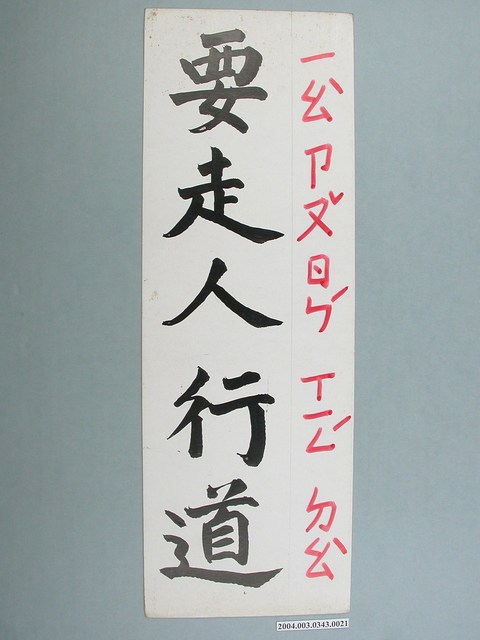 要走人行道
ㄧㄠ ㄗㄡˇ ㄖㄣˊ ㄒㄧㄥˊ ㄉㄠ
2004.003.0343.0021